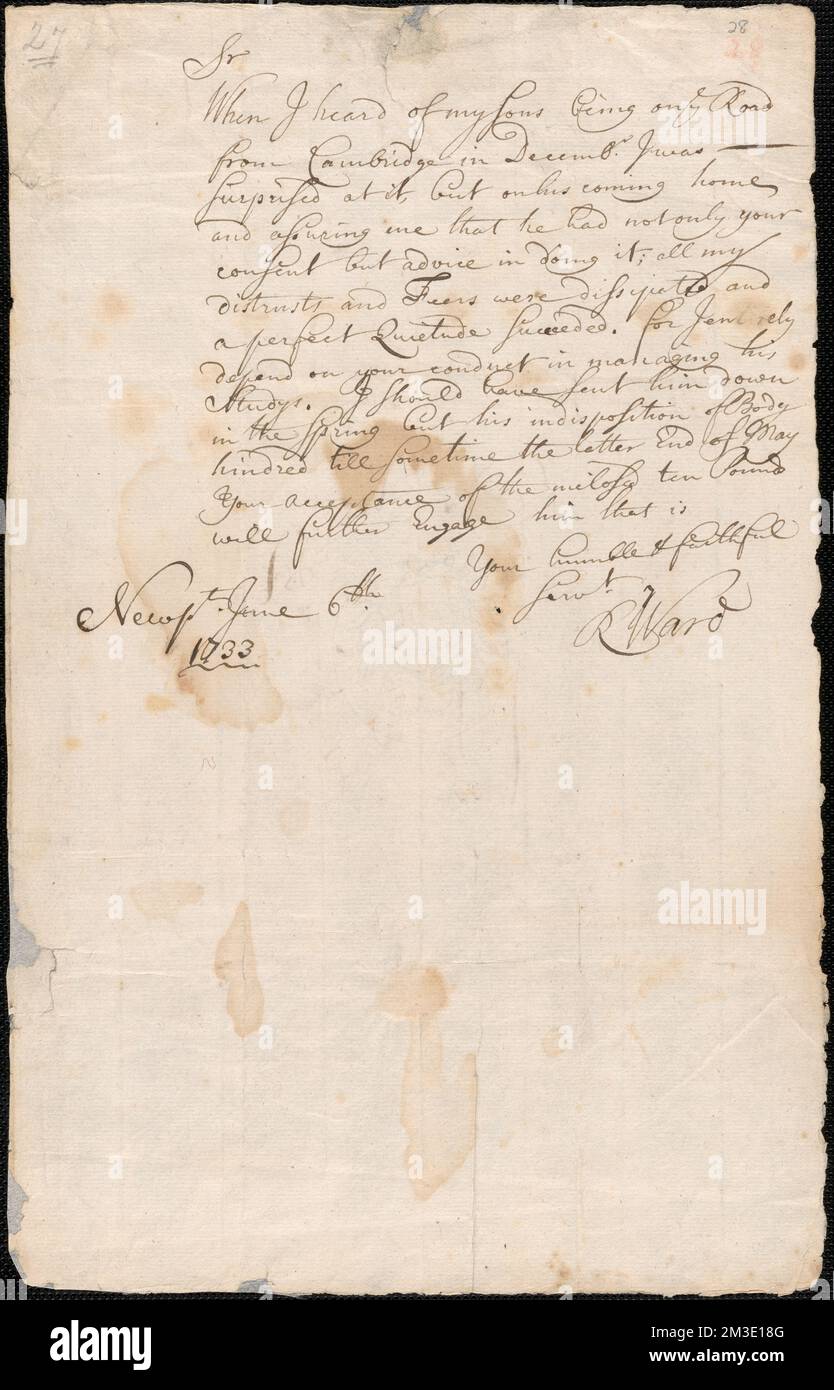 27
28
28
Sr
When I heard of my sons being on ye Road
from Cambridge in Decembr. I was
surprised at it, but on his coming home
and assuring me that he had not only your
consent but advice in doing it; all my
distrusts and Feers were dissipated and
a perfect Quietude succeeded. for I entirely
depend on your conduct in managing his
Studys. I should have sent him down
in the Spring but his indisposition of Body
hindred till sometime the latter End of May
Your acceptance of the inclosed ten Pound
will further Engage him that is
Your humble & faithful
Servt.
R Ward
Newpt. June 6th
1733
alamy
Image ID: 2M3E18G
www.alamy.com